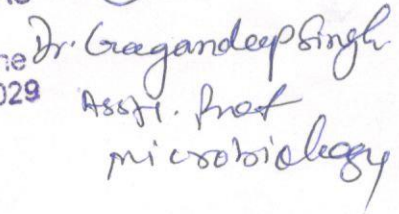 Dr. Gagandeep Singh
ne
029 Asstt. Prof
microbiology